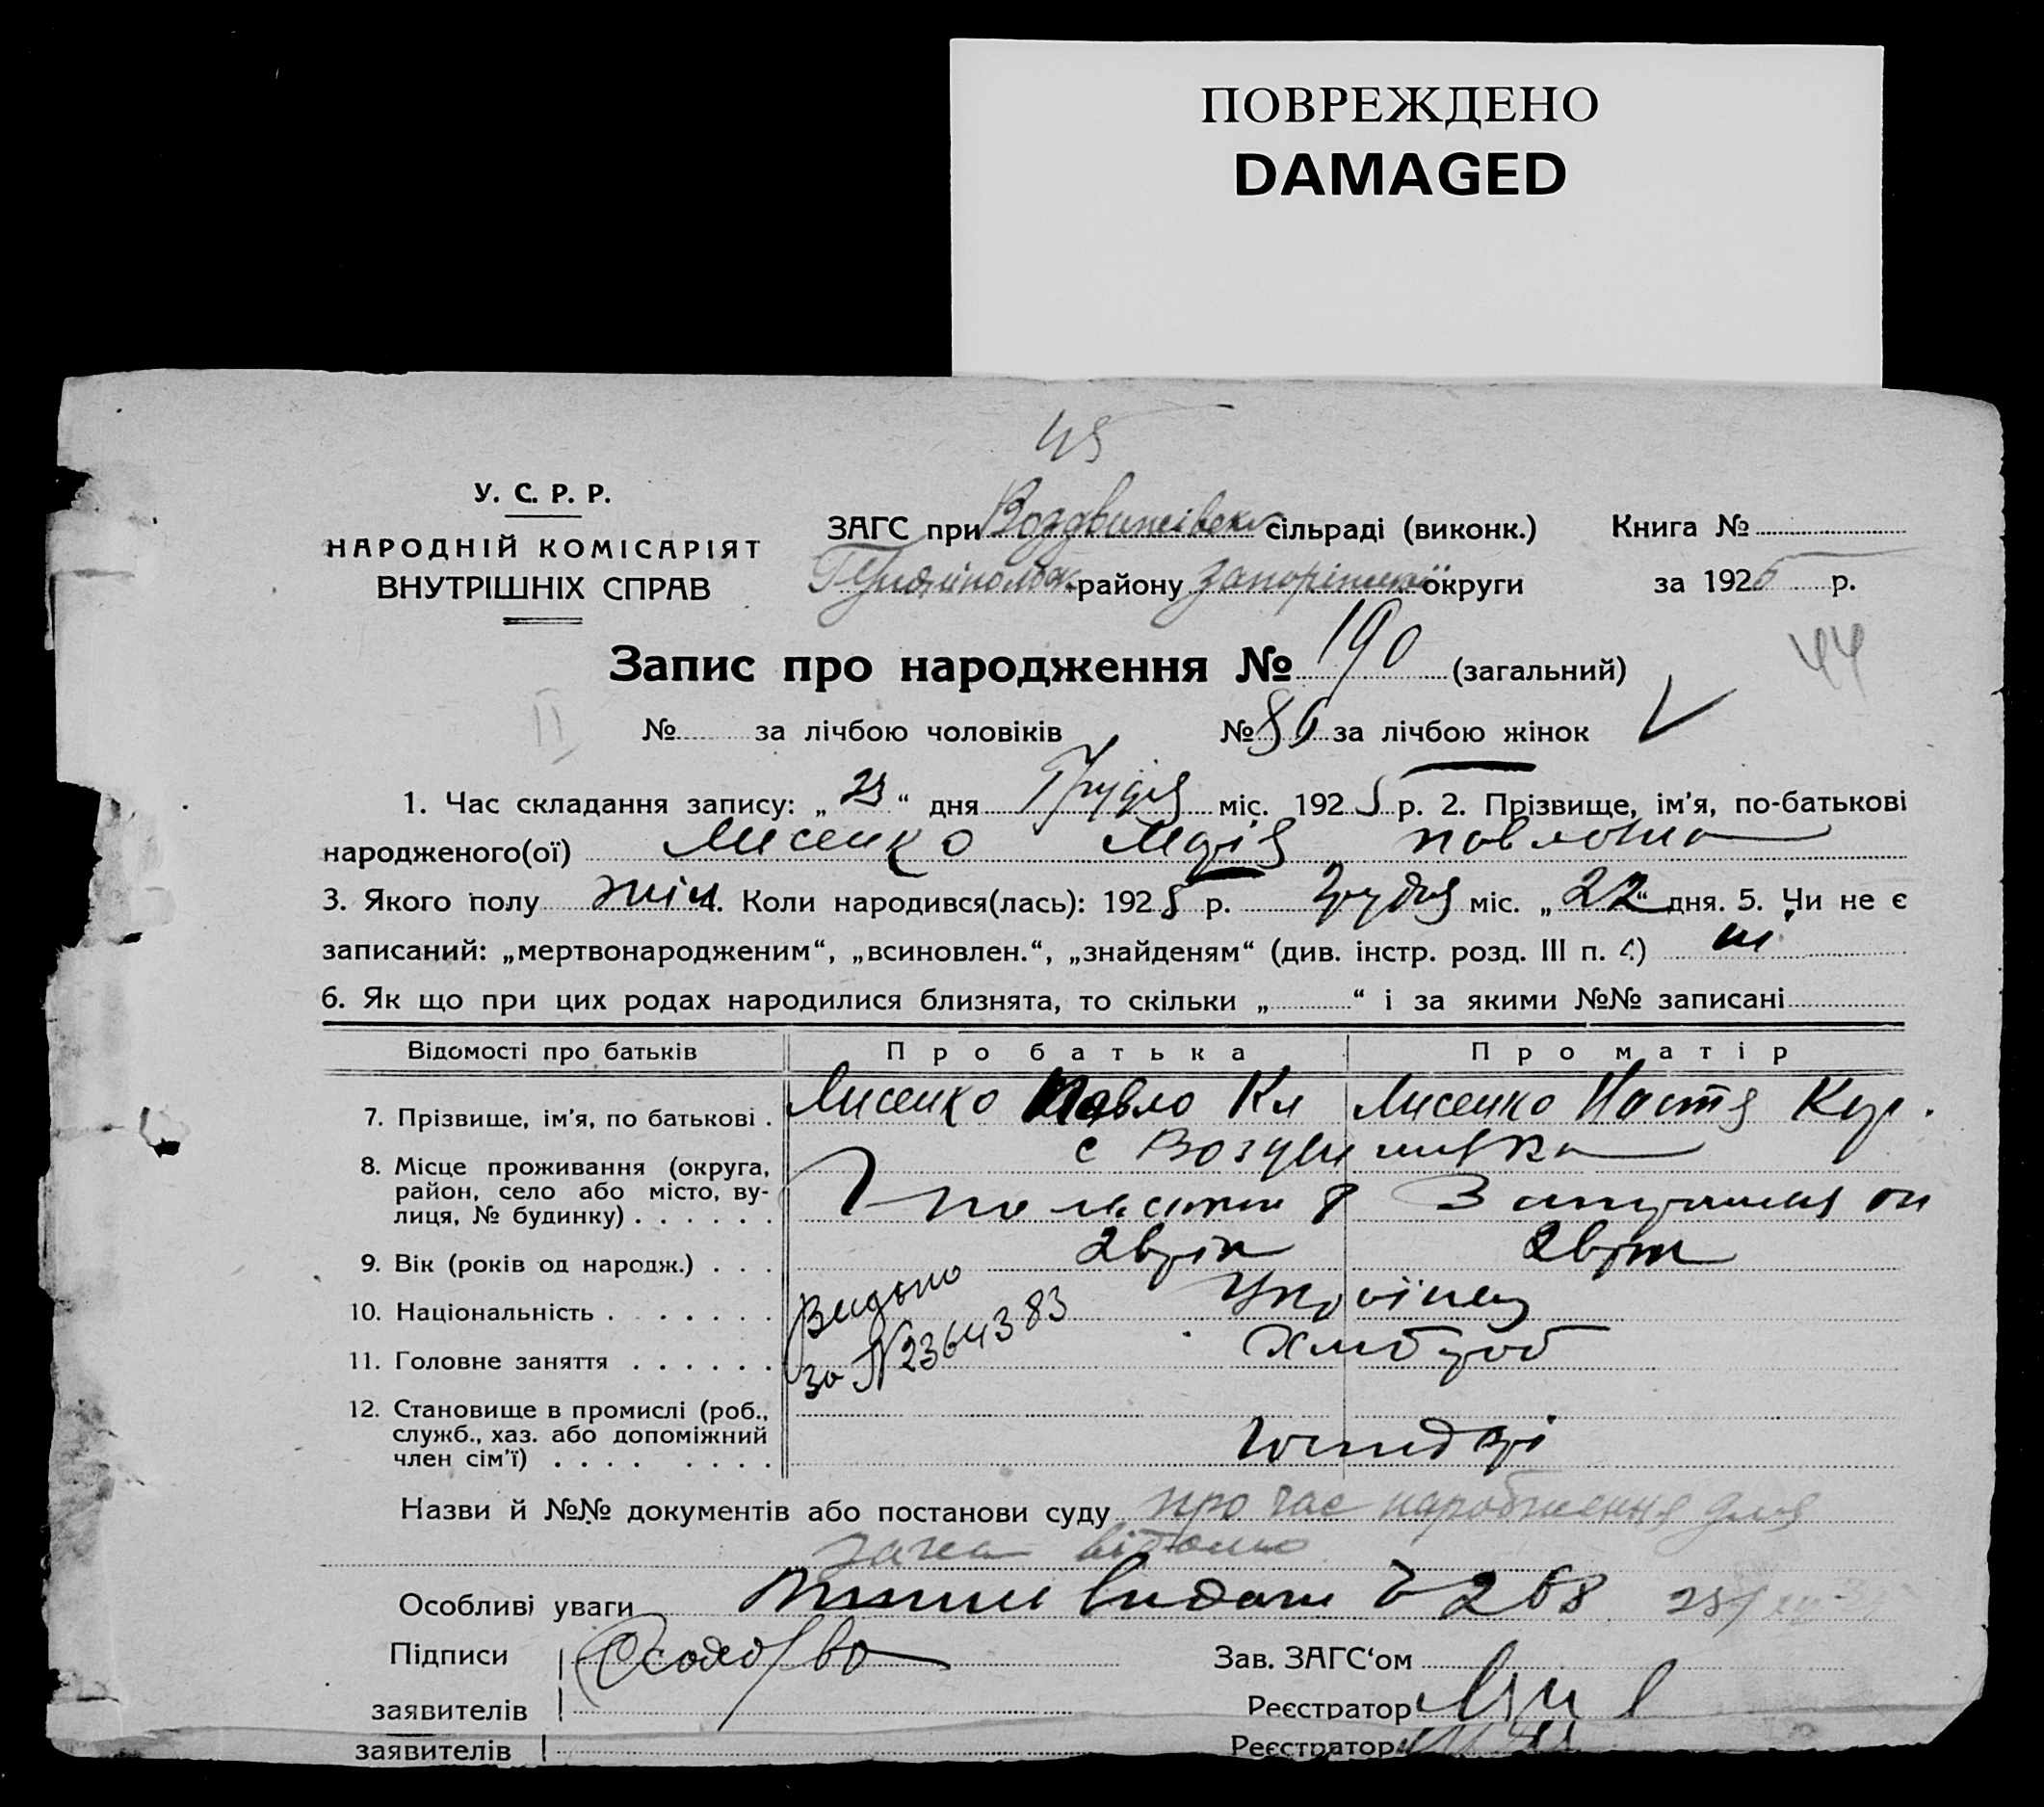 ПОВРЕЖДЕНО
DAMAGED
45
У. С. Р. Р.
НАРОДНІЙ КОМІСАРІЯТ
ВНУТРІШНІХ СПРАВ
ЗАГС при Воздвижівськ сільраді (виконк.) Книга №
району Запоріжської округи за 1925 р.
44
Запис про народження № 190 (загальний)
II № за лічбою чоловіків № 86 за лічбою жінок
1. Час складання запису: „23“ дня Грудня міс. 1925 р. 2. Прізвище, ім'я, по-батькові
народженого(ої) Лисенко Марія Павловна
3. Якого полу жін 4. Коли народився(лась): 1925 р. Грудня міс. „22“ дня. 5. Чи не є
записаний: „мертвонародженим“, „всиновлен.“, „знайденям“ (див. інстр. розд. III п. 4) ні
6. Як що при цих родах народилися близнята, то скільки „ “ і за якими №№ записані
Відомості про батьків Про батька Про матір
7. Прізвище, ім'я, по батькові . Лисенко Павло Кл Лисенко Настя Кур.
8. Місце проживання (округа, район, село або місто, вулиця, № будинку) . . . . . . с Воздвижівка
9. Вік (років од народж.) . . .
10. Національність . . . . . . . Українец
11. Головне заняття . . . . . . Хлібороб
Видано
За № 2364383
12. Становище в промислі (роб., служб., хаз. або допоміжний член сім'ї) . . . . . . . .
Назви й №№ документів або постанови суду про час народження для
загса відомо
Особливі уваги видана 268
Підписи Зав. ЗАГС'ом
заявителів Реєстратор
заявителів Реєстратор